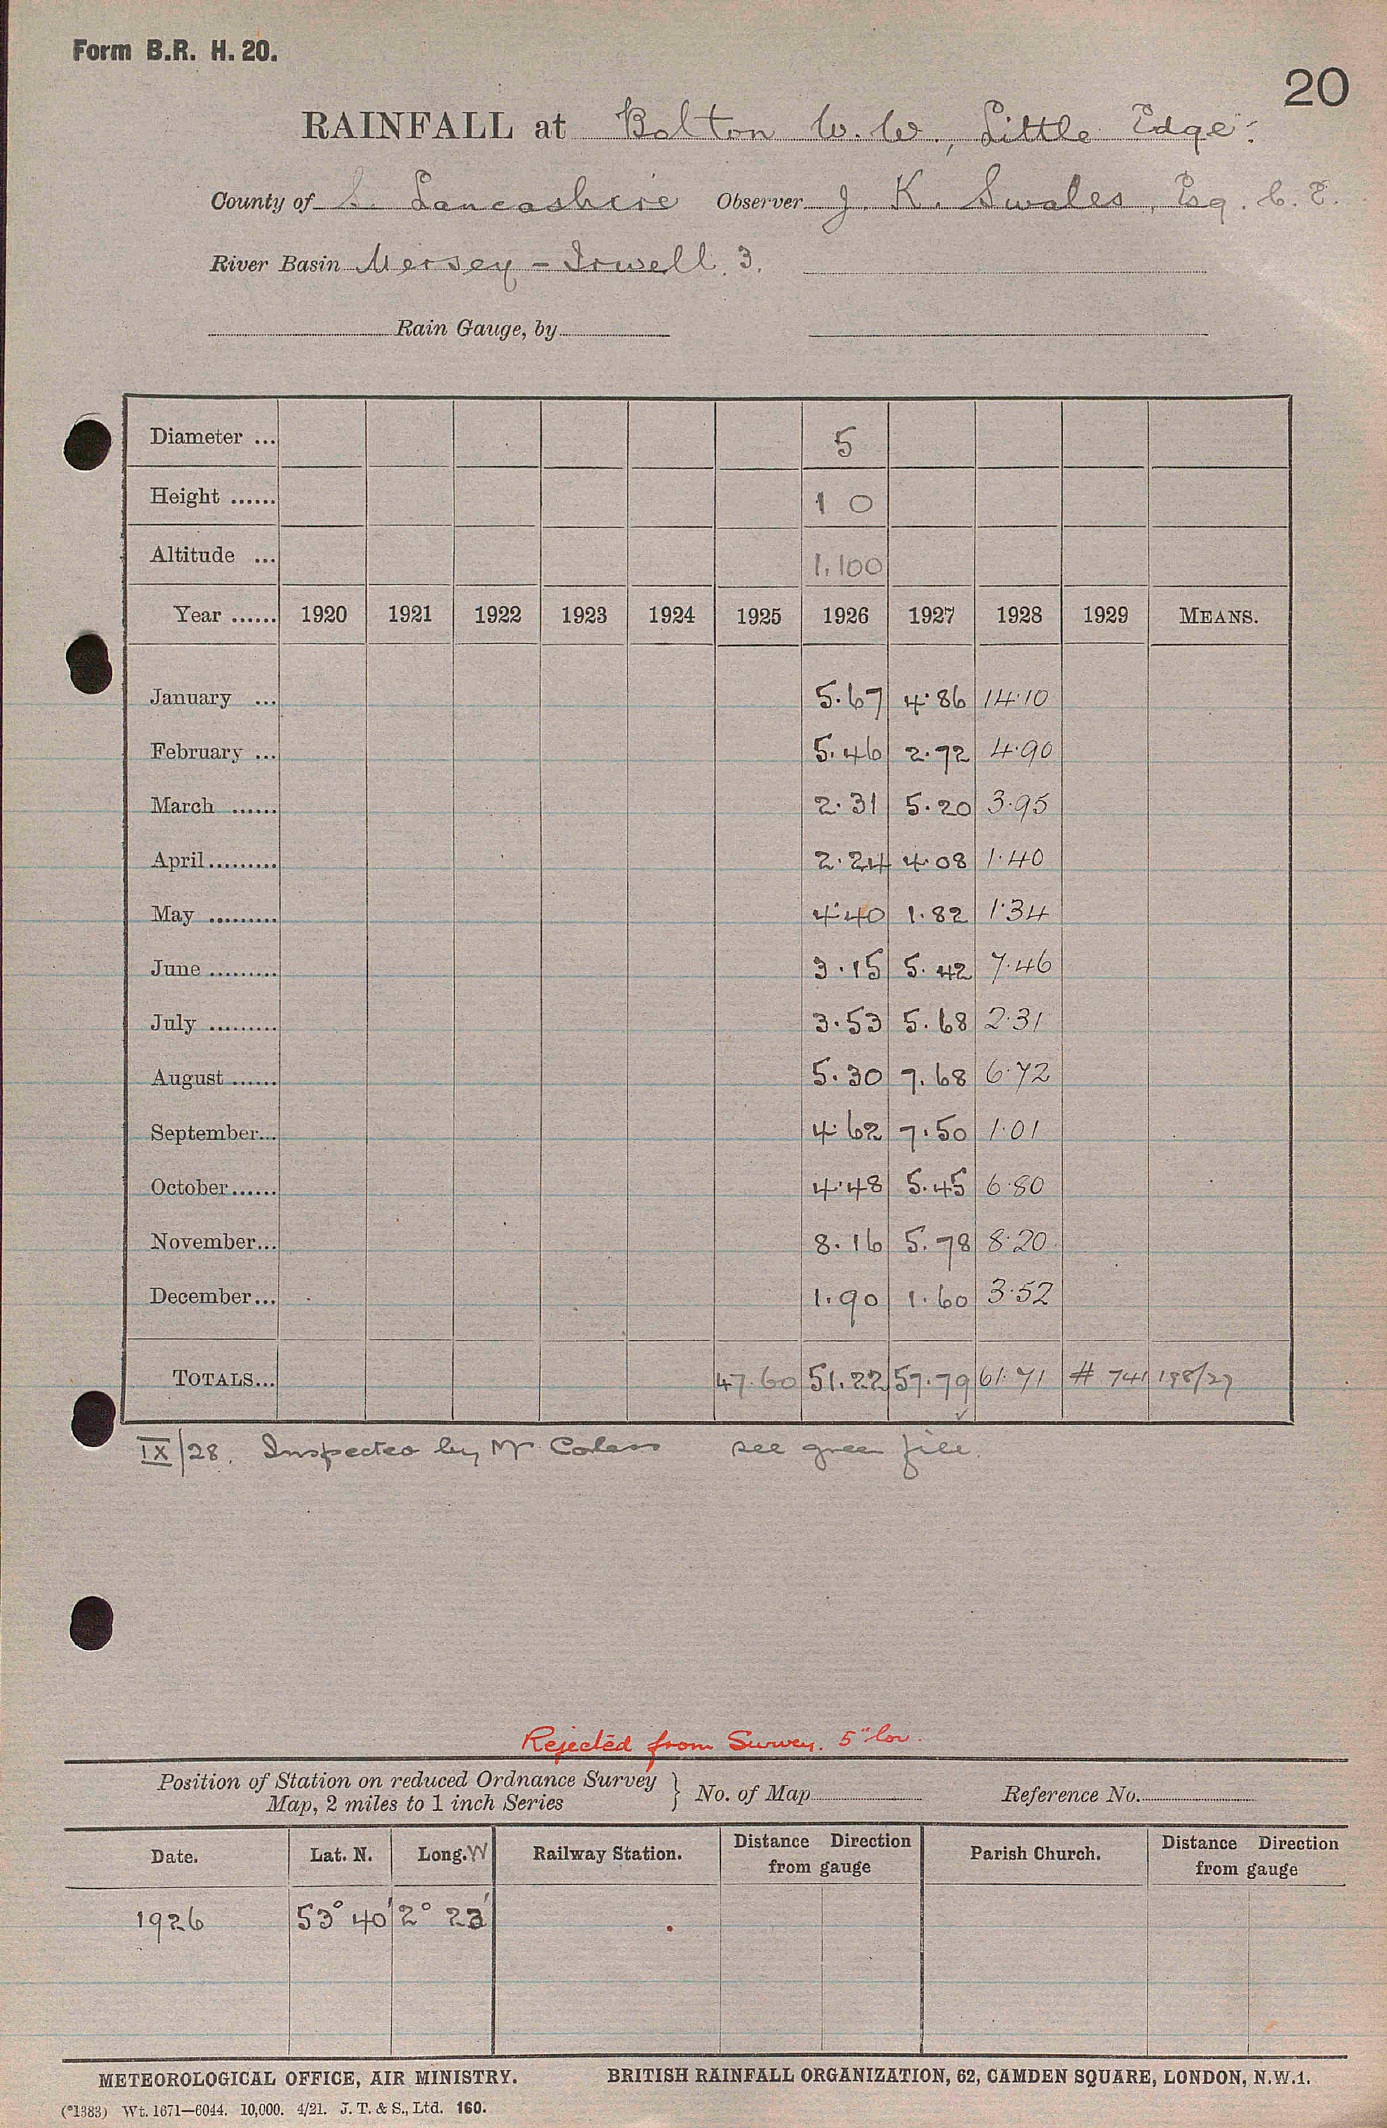 Form B.R. H. 20.
20
RAINFALL at Bolton W. W., Little Edge.
County of S. Lancashire Observer J. K. Swales, Esq. C. E.
River Basin Mersey - Irwell. 3.
Rain Gauge, by
Diameter ... 5
Height ...... 1 0
Altitude ... 1,100
Year ...... 1920 1921 1922 1923 1924 1925 1926 1927 1928 1929 MEANS.
January ... 5.67 4.86 14.10
February ... 5.46 2.72 4.90
March ...... 2.31 5.20 3.95
April ......... 2.24 4.08 1.40
May ......... 4.40 1.82 1.34
June ......... 3.15 5.42 7.46
July ......... 3.53 5.68 2.31
August ...... 5.30 7.68 6.72
September... 4.62 7.50 1.01
October...... 4.48 5.45 6.80
November... 8.16 5.78 8.20
December... 1.90 1.60 3.52
TOTALS... 47.60 51.22 57.79 61.71 # 741 198/27
IX/28. Inspected by Mr see green file.
Rejected from Survey. 5" low.
Position of Station on reduced Ordnance Survey } No. of Map Reference No.
Map, 2 miles to 1 inch Series
Date. Lat. N. Long. W Railway Station. Distance Direction from gauge Parish Church. Distance Direction from gauge
1926 53° 40' 2° 23'
METEOROLOGICAL OFFICE, AIR MINISTRY. BRITISH RAINFALL ORGANIZATION, 62, CAMDEN SQUARE, LONDON, N.W.1.
(*1383) Wt. 1671—6044. 10,000. 4/21. J. T. & S., Ltd. 160.